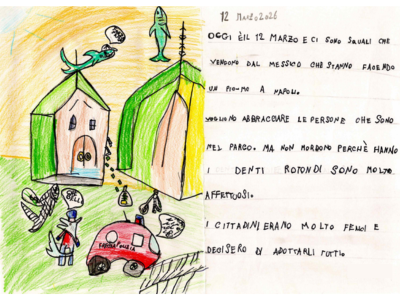 12 MARZO 2026
OGGI È IL 12 MARZO E CI SONO SQUALI CHE
VENGONO DAL MESSICO CHE STANNO FACENDO
UN
A NAPOLI.
VOGLIONO ABBRACCIARE LE PERSONE CHE SONO
NEL PARCO. MA NON MORDONO PERCHÈ HANNO
I DENTI ROTONDI SONO MOLTO
AFFETTUOSI.
I CITTADINI ERANO MOLTO FELICI E
DECISERO DI ADOTTARLI TUTTI.